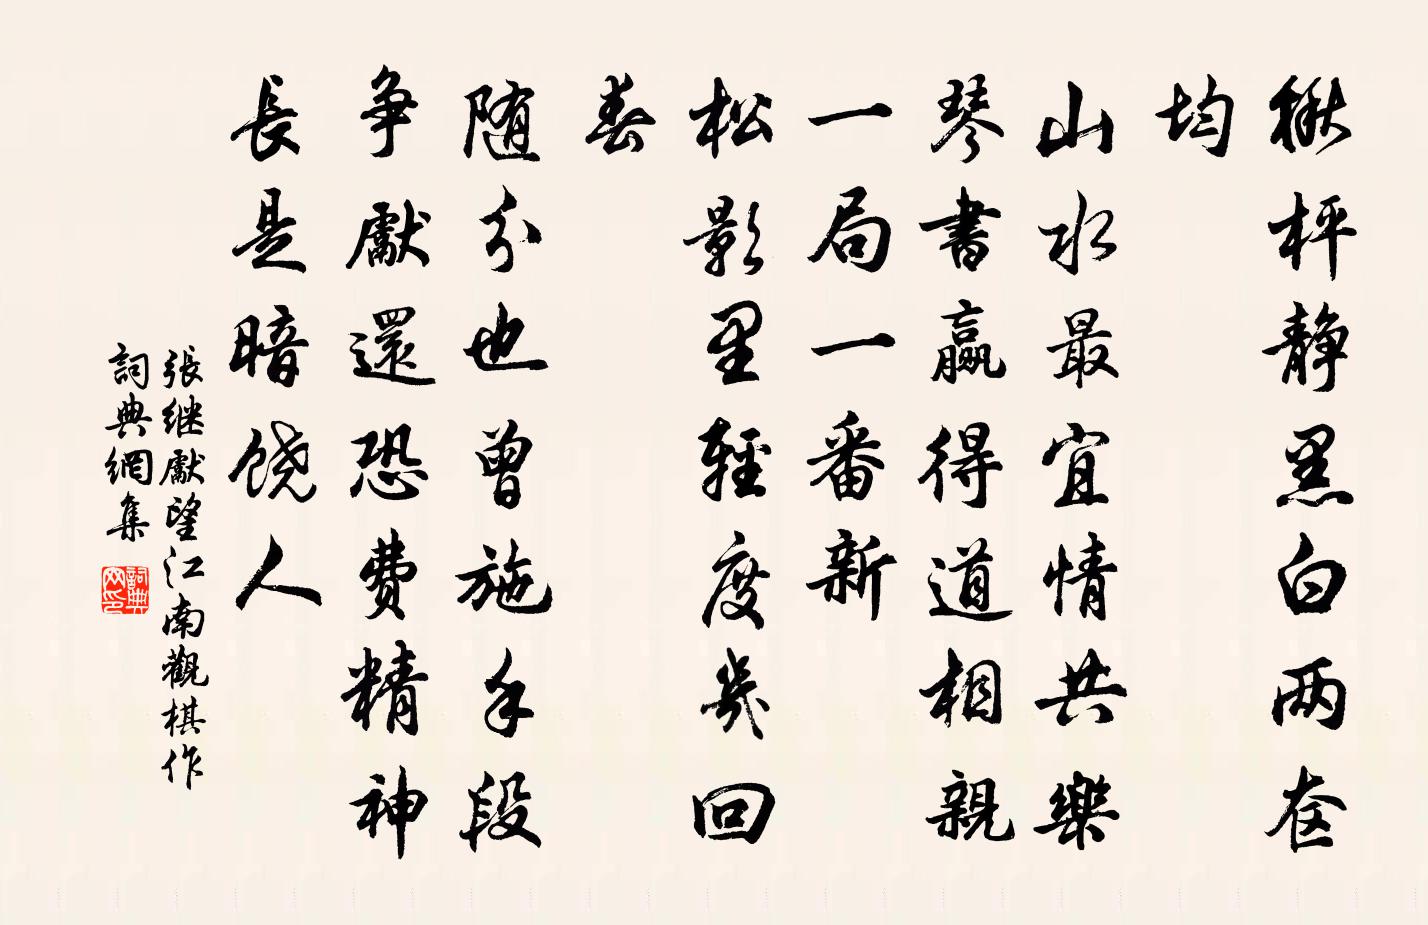 楸枰静黑白两奁
均
山水最宜情共樂
琴書赢得道相親
一局一番新
松影里輕度幾回
春
随分也曾施手段
争獻還恐費精神
長是暗饶人
張继獻望江南觀棋作
詞典網集
詞典
网印